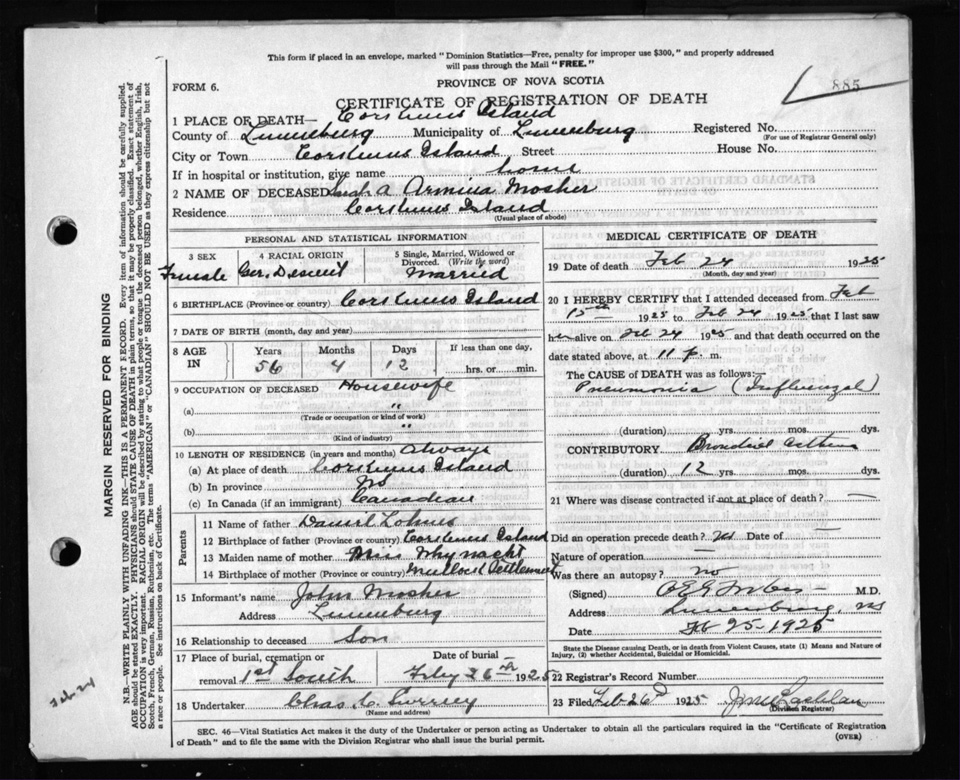 This form if placed in an envelope, marked "Dominion Statistics—Free, penalty for improper use $300," and properly addressed
will pass through the Mail "FREE."
PROVINCE OF NOVA SCOTIA
FORM 6.
885
CERTIFICATE OF REGISTRATION OF DEATH
1 PLACE OF DEATH— Corkums Island
County of Lunenburg Municipality of Lunenburg Registered No.
(For use of Registrar General only)
City or Town Corkums Island Street House No.
If in hospital or institution, give name home
2 NAME OF DECEASED Mosher
Residence Corkums Island
(Usual place of abode)
PERSONAL AND STATISTICAL INFORMATION
3 SEX 4 RACIAL ORIGIN 5 Single, Married, Widowed or Divorced. (Write the word)
Female Ger. Descent Married
6 BIRTHPLACE (Province or country) Corkums Island
7 DATE OF BIRTH (month, day and year)
8 AGE IN Years Months Days If less than one day,
56 4 12 hrs. or min.
9 OCCUPATION OF DECEASED Housewife
(a) "
(Trade or occupation or kind of work)
(b) "
(Kind of industry)
10 LENGTH OF RESIDENCE (in years and months) always
(a) At place of death Corkums Island
(b) In province NS
(c) In Canada (if an immigrant) Canadian
Parents
11 Name of father Daniel
12 Birthplace of father (Province or country) Corkums Island
13 Maiden name of mother Miss Whynacht
14 Birthplace of mother (Province or country) Settlement
15 Informant's name John Mosher
Address Lunenburg
16 Relationship to deceased Son
17 Place of burial, cremation or Date of burial
removal 1st South 26th 1925
18 Undertaker Chas
(Name and address)
MEDICAL CERTIFICATE OF DEATH
19 Date of death Feb 24 1925
(Month, day and year)
20 I HEREBY CERTIFY that I attended deceased from Feb
15th 1925 to Feb 24 1925 that I last saw
her alive on Feb 24 1925 and that death occurred on the
date stated above, at 11 p. m.
The CAUSE of DEATH was as follows:
Pneumonia (Influenzal)
(duration) yrs. mos. dys.
CONTRIBUTORY Bronchial Asthma
(duration) 12 yrs. mos. dys.
21 Where was disease contracted if not at place of death? —
Did an operation precede death? No Date of —
Nature of operation —
Was there an autopsy? no
(Signed) M.D.
Address Lunenburg, NS
Date Feb 25-1925
State the Disease causing Death, or in death from Violent Causes, state (1) Means and Nature of
Injury, (2) whether Accidental, Suicidal or Homicidal.
22 Registrar's Record Number
23 Filed Feb 26 1925 J McLachlan
(Division Registrar)
SEC. 46—Vital Statistics Act makes it the duty of the Undertaker or person acting as Undertaker to obtain all the particulars required in the "Certificate of Registration
of Death" and to file the same with the Division Registrar who shall issue the burial permit.
(OVER)
MARGIN RESERVED FOR BINDING
N.B.—WRITE PLAINLY WITH UNFADING INK—THIS IS A PERMANENT RECORD. Every item of information should be carefully supplied.
AGE should be stated EXACTLY. PHYSICIANS should STATE CAUSE OF DEATH in plain terms, so that it may be properly classified. Exact statement of
OCCUPATION is very important. RACIAL ORIGIN will be described by stating to what people or tongue the deceased person belonged, whether English, Irish,
Scotch, French, German, Russian, Ruthenian, etc. The terms "AMERICAN" or "CANADIAN" SHOULD NOT BE USED as they express citizenship but not
a race or people. See instructions on back of Certificate.
Feb 24